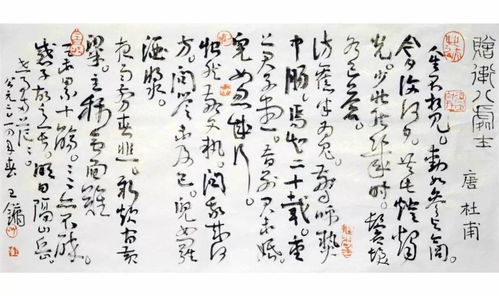 贈衛八處士
唐 杜甫
人生不相見。動如参与商。
今夕復何夕。共此燈燭
光。少壮能几時。鬢髮
各已蒼。
訪舊半为鬼。驚呼熱
中腸。焉知二十载。重
上君子堂。昔别君未婚。
兒女忽成行。
怡然敬父执。问我来何
方。问答未及已。兒女羅
酒漿。
夜雨剪春韭。新炊間黄
粱。主称會面難
一举累十觴。〻〻亦不醉。
感子故意长。明日隔山岳。
世事两茫〻。
公元二 年春 王鏞